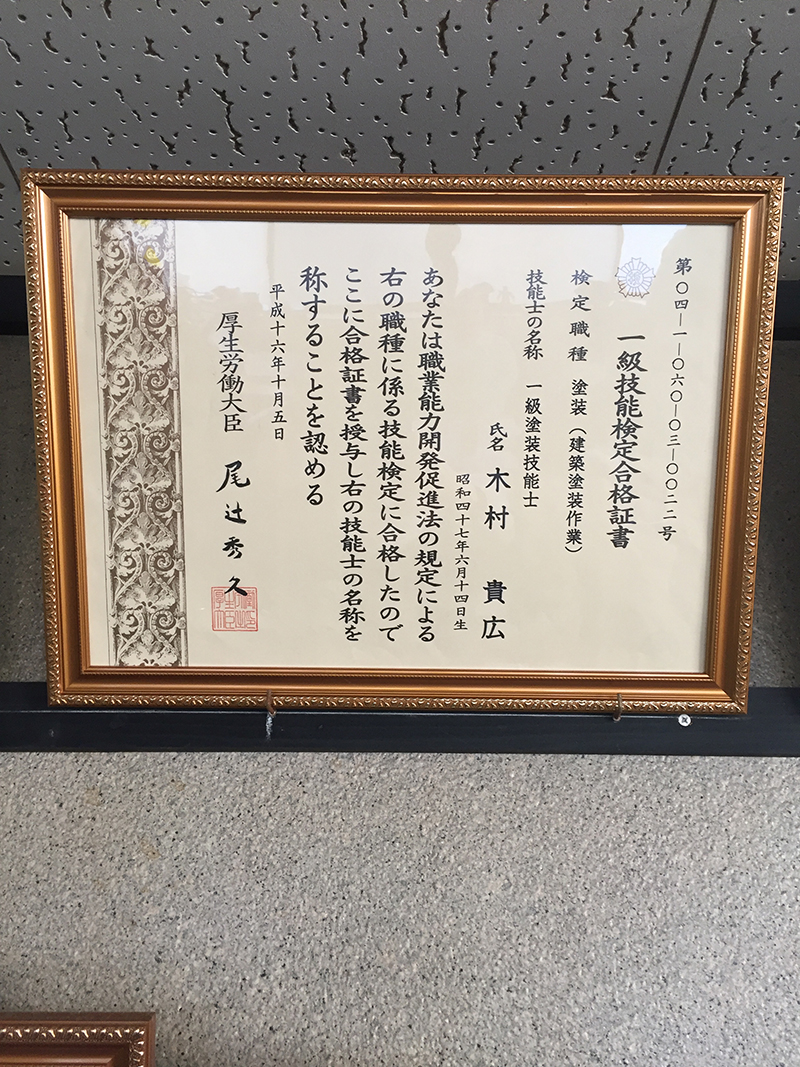 第〇四－一－〇六〇－〇三－〇〇二二号
一級技能検定合格証書
検定職種 塗装（建築塗装作業）
技能士の名称 一級塗装技能士
氏名 木村 貴広
昭和四十七年六月十四日生
あなたは職業能力開発促進法の規定による
右の職種に係る技能検定に合格したので
ここに合格証書を授与し右の技能士の名称を
称することを認める
平成十六年十月五日
厚生労働大臣 尾辻秀久